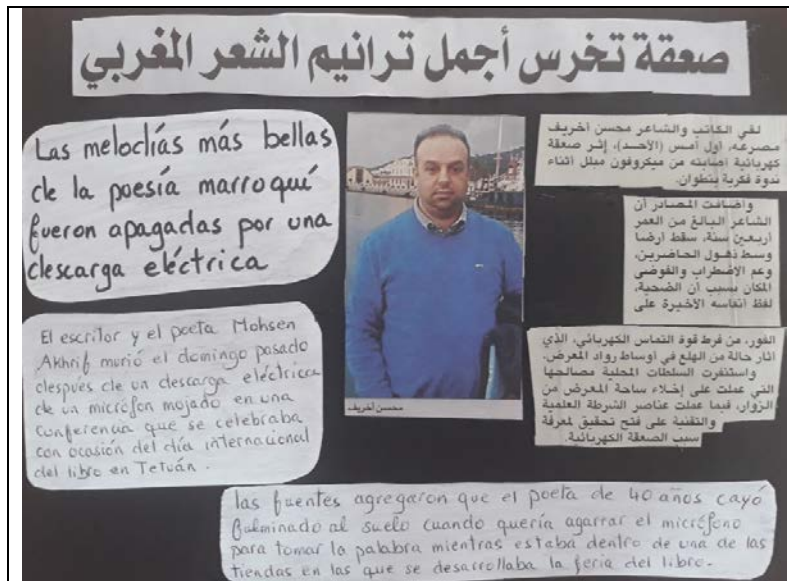 صعقة تخرس أجمل ترانيم الشعر المغربي
Las melodías más bellas
de la poesía marroquí
fueron apagadas por una
descarga eléctrica
El escritor y el poeta Mohsen
Akhrif murió el domingo pasado
despues de un descarga eléctrica
de un micrófon mojado en una
conferencia que se celebraba
con ocasión del día internacional
del libro en Tetuán.
محسن أخريف
لقي الكاتب والشاعر محسن أخريف
مصرعه، أول أمس (الأحد)، إثر صعقة
كهربائية أصابته من ميكروفون مبلل أثناء
ندوة فكرية بتطوان.
وأضافت المصادر أن
الشاعر البالغ من العمر
أربعين سنة، سقط أرضا
وسط ذهول الحاضرين،
وعم الاضطراب والفوضى
المكان بسبب أن الضحية،
لفظ أنفاسه الأخيرة على
الفور، من فرط قوة التماس الكهربائي، الذي
أثار حالة من الهلع في أوساط رواد المعرض.
واستنفرت السلطات المحلية مصالحها
التي عملت على إخلاء ساحة المعرض من
الزوار، فيما عملت عناصر الشرطة العلمية
والتقنية على فتح تحقيق لمعرفة
سبب الصعقة الكهربائية.
las fuentes agregaron que el poeta de 40 años cayó
fulminado al suelo cuando quería agarrar el micrófono
para tomar la palabra mientras estaba dentro de una de las
tiendas en las que se desarrollaba la feria del libro.